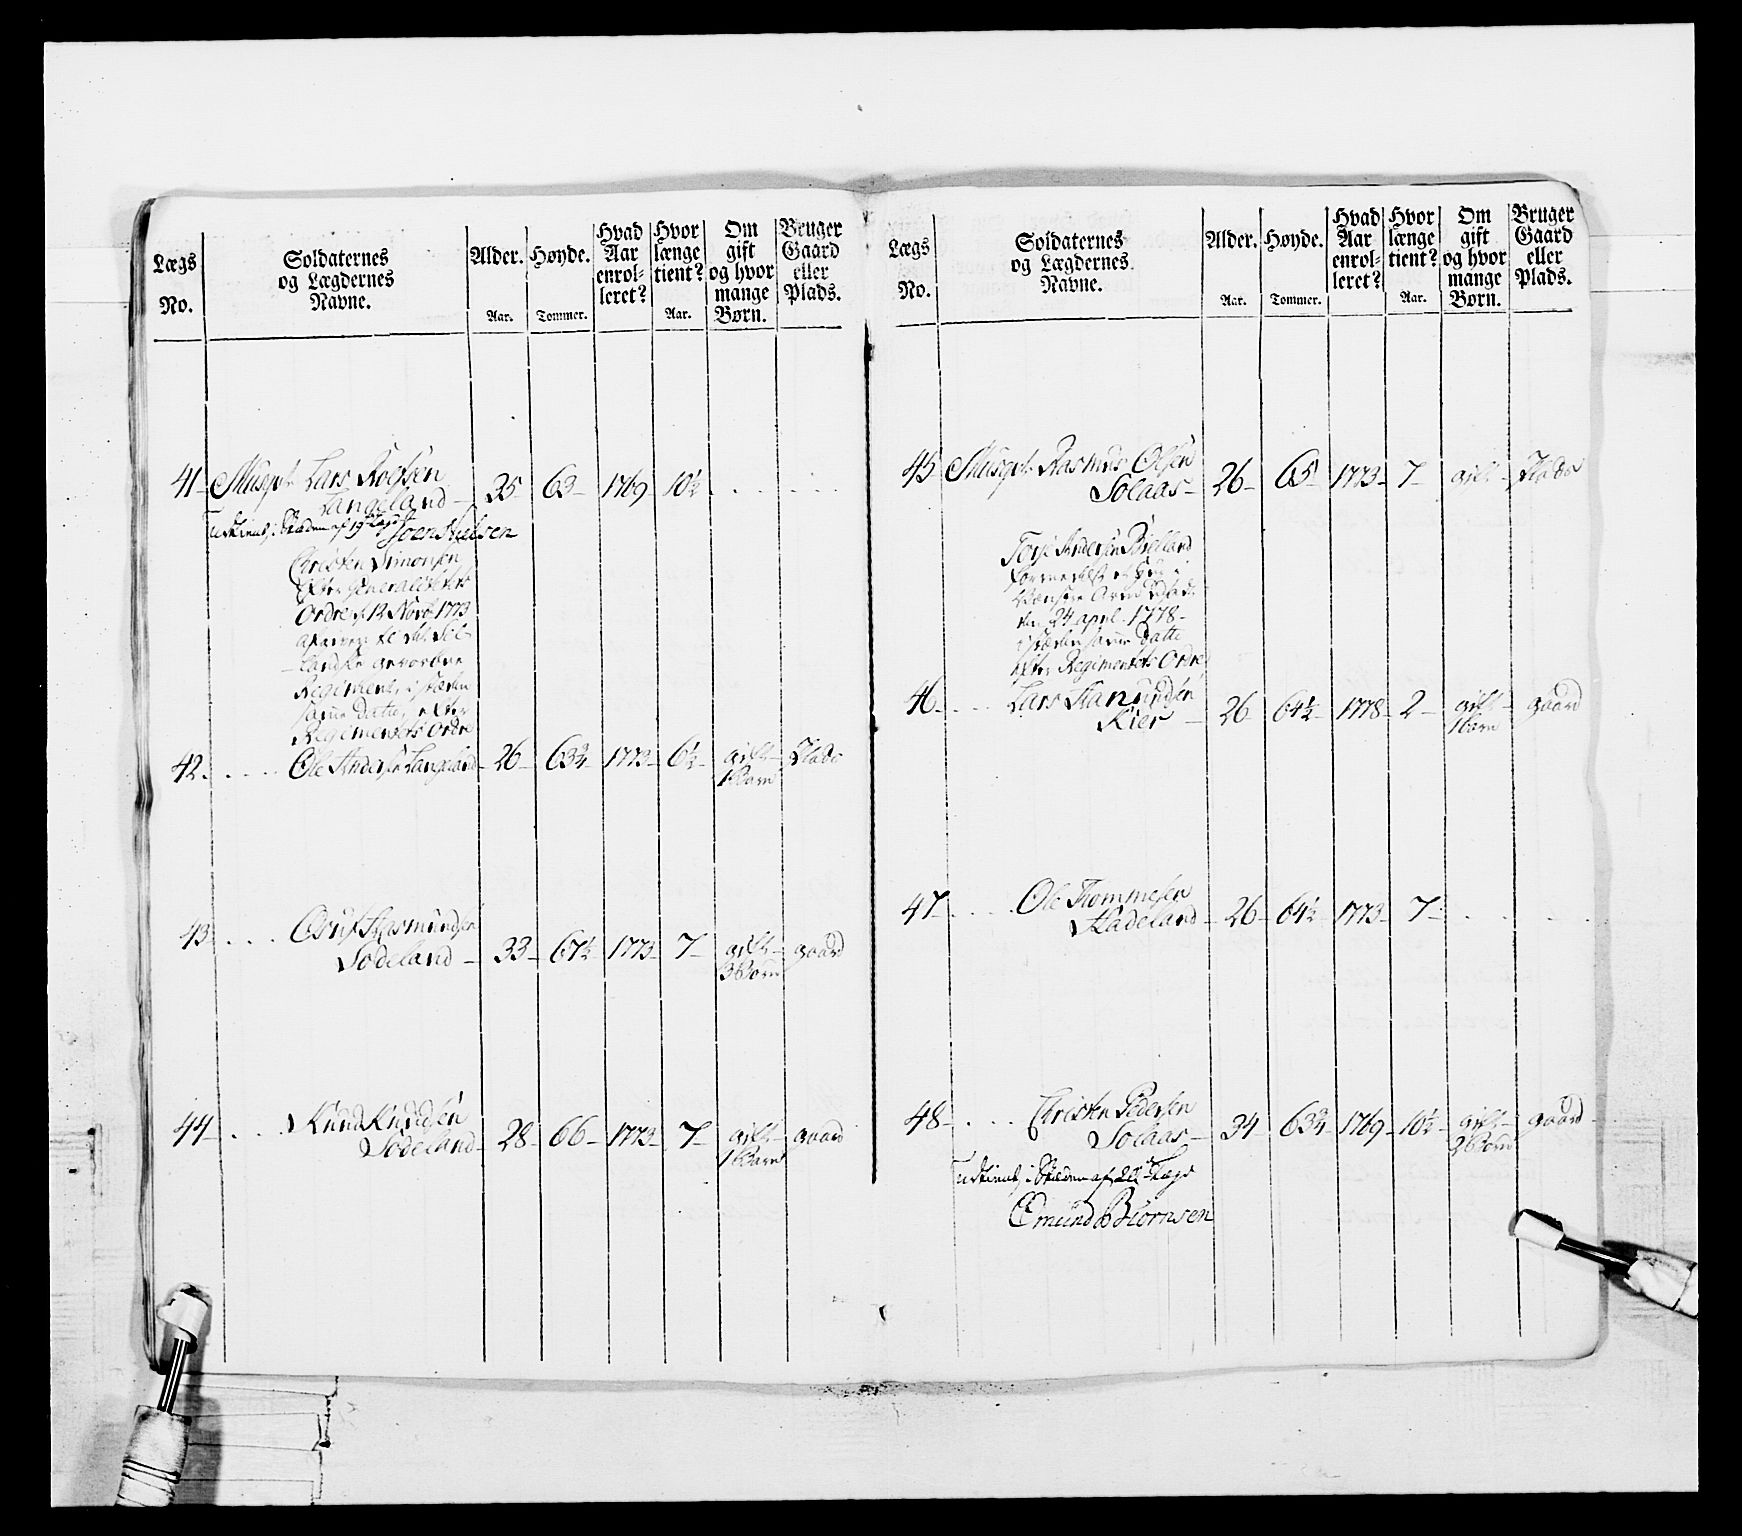 Lægs
No.
Soldaternes
og Lægdernes
Navne.
Alder.
Aar.
Høyde.
Tommer.
Hvad
Aar
enrol-
leret?
Hvor
længe
tient?
Aar.
Om
gift
og hvor
mange
Børn.
Bruger
Gaard
eller
Plads.
41 Musqt. Lars Roefsen
Langeland 35 63 1769 10½
Udtient, i Stæden af 19de Lægd Joen Nielsen
Christen Simonsen
efter Generalitetets
Ordre af 12 Nov. 1773
til det
landske gevorbne
Regiment, i stæden
samme Datto, efter
Regimentets Ordre
42. Ole Anders. Langeland 26 63¾ 1773 6½ gift Plads
1 Barn
43 Asmundsen
Sødeland 33 67½ 1773 7 gift gaard
3 Børn
44 Knud Knudsen
Sødeland 28 66 1773 7 gift gaard
1 Barn
Lægs
No.
Soldaternes
og Lægdernes
Navne.
Alder.
Aar.
Høyde.
Tommer.
Hvad
Aar
enrol-
leret?
Hvor
længe
tient?
Aar.
Om
gift
og hvor
mange
Børn.
Bruger
Gaard
eller
Plads.
45 Musqt. Rasmus Olsen
Solaas 26 65 1773 7 gift Plads
Andersen
formedelst et i
Venstre Arm
den 24 april 1778
i stæden samme Datto
efter Regimentets Ordre
46 Lars
Kier 26 64½ 1778 2 gift gaard
1 Barn
47 Ole Tommesen
Hadeland 26 64½ 1773 7
48 Christen Pedersen
Solaas 34 63¾ 1769 10½ gift gaard
2 Børn
Udtient, i Stæden af Lægd
Emund Biørnsen